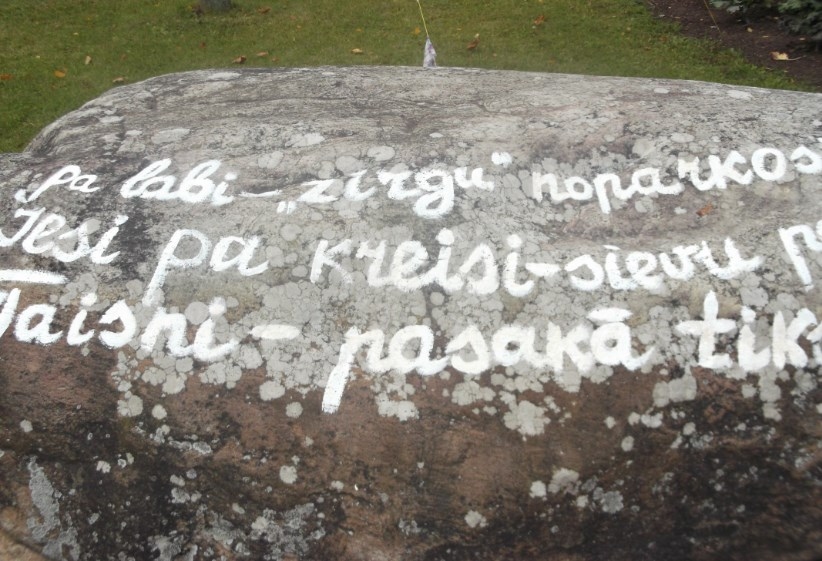 Pa labi - „zirgu" noparkos
Iesi pa kreisi - sievu
Taisni - pasakā tik